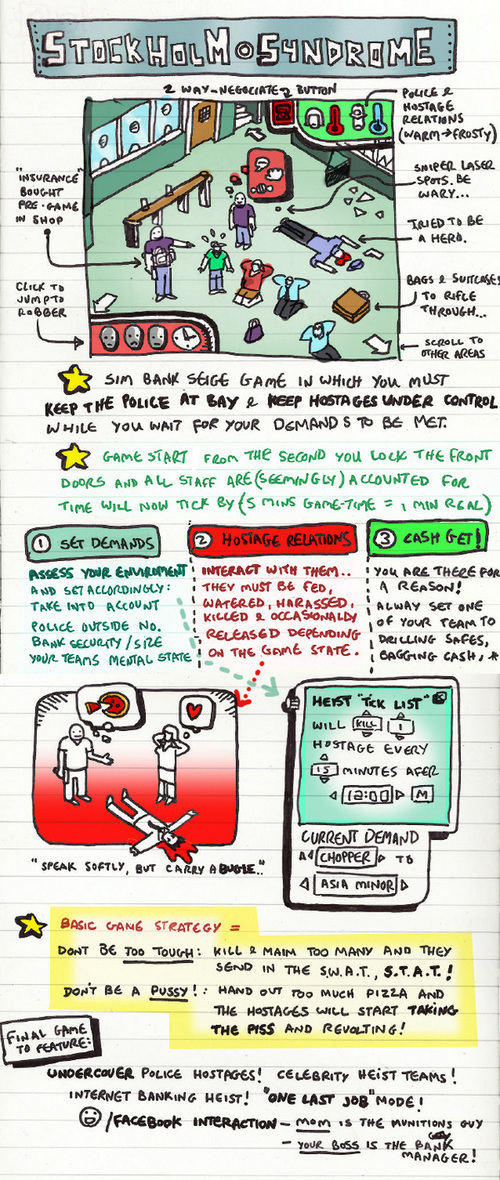 STOCKHOLM SYNDROME
2 WAY-NEGOTIATE BUTTON
POLICE &
HOSTAGE
RELATIONS
(WARM→FROSTY)
"INSURANCE"
BOUGHT
PRE-GAME
IN SHOP
SNIPER LASER
SPOTS. BE
WARY...
TRIED TO BE
A HERO.
CLICK TO
JUMP TO
ROBBER
BAGS & SUITCASES
TO RIFLE
THROUGH...
SCROLL TO
OTHER AREAS
SIM BANK SEIGE GAME IN WHICH YOU MUST
KEEP THE POLICE AT BAY & KEEP HOSTAGES UNDER CONTROL
WHILE YOU WAIT FOR YOUR DEMANDS TO BE MET.
GAME START FROM THE SECOND YOU LOCK THE FRONT
DOORS AND ALL STAFF ARE (SEEMINGLY) ACCOUNTED FOR
TIME WILL NOW TICK BY (5 MINS GAME-TIME = 1 MIN REAL)
1 SET DEMANDS
ASSESS YOUR ENVIROMENT
AND SET ACCORDINGLY:
TAKE INTO ACCOUNT
POLICE OUTSIDE NO.
BANK SECURITY/SIZE
YOUR TEAMS MENTAL STATE
2 HOSTAGE RELATIONS
INTERACT WITH THEM..
THEY MUST BE FED,
WATERED, HARASSED,
KILLED & OCCASIONALLY
RELEASED DEPENDING
ON THE GAME STATE.
3 CASH GET!
YOU ARE THERE FOR
A REASON!
ALWAY SET ONE
OF YOUR TEAM TO
DRILLING SAFES,
BAGGING CASH,
"SPEAK SOFTLY, BUT CARRY A BUGLE.."
HEIST "TICK LIST"
WILL KILL 1
HOSTAGE EVERY
15 MINUTES AFER
12:00 M
CURRENT DEMAND
A CHOPPER TO
ASIA MINOR
BASIC GAME STRATEGY =
DONT BE TOO TOUGH: KILL & MAIM TOO MANY AND THEY
SEND IN THE S.W.A.T., S.T.A.T.!
DON'T BE A PUSSY!: HAND OUT TOO MUCH PIZZA AND
THE HOSTAGES WILL START TAKING
THE PISS AND REVOLTING!
FINAL GAME
TO FEATURE:
UNDERCOVER POLICE HOSTAGES! CELEBRITY HEIST TEAMS!
INTERNET BANKING HEIST! "ONE LAST JOB" MODE!
/FACEBOOK INTERACTION - MOM IS THE MUNITIONS GUY
- YOUR BOSS IS THE BANK
MANAGER!